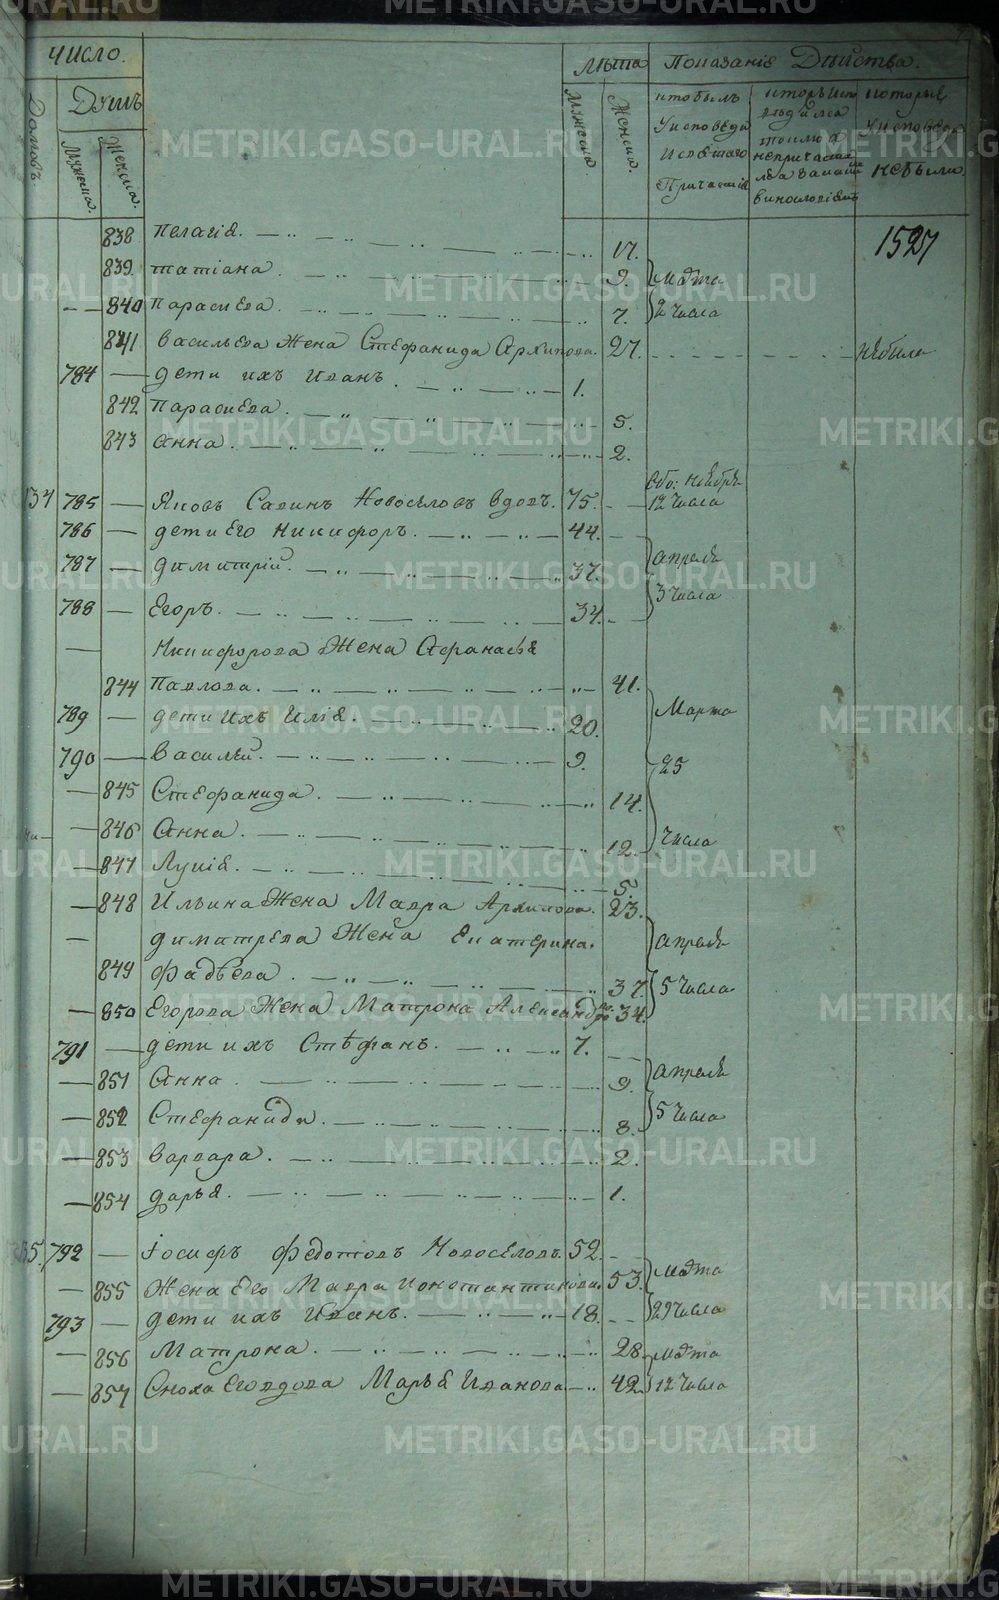 число.
Лѣта Показаніе Дѣйства.
Домовъ.
Душъ
Мужеска.
Женска.
Мужеска
Женска.
кто былъ
у исповеди
и святаго
Причастія
которыя
у исповеди
не были
838 Пелагія. 17.
1527
839 татіана. 9. Марта
840 Параскева. 7. 2 числа
841 васильева Жена Стефанида Архипова. 27. небыла
784 дети ихъ Иванъ. 1.
842 Параскева. 5.
843 Анна. 2.
134 785 Яковъ Савинъ Новоселовъ вдовъ. 75. 12 числа
786 дети Его Никифоръ. 44.
787 димитрій. 37. апреля
788 Егоръ. 34. 3 числа
Никифорова Жена Афанасья
844 Павлова. 41.
789 дети ихъ Илія. 20. Марта
790 Василій. 9. 25
845 Стефанида. 14.
846 Анна. 12. числа
847 Лукія. 5.
848 Ильина Жена Мавра Архипова. 23.
димитрева Жена Екатерина. апреля
849 Фадѣева. 37. 5 числа
850 Егорова Жена Матрона Александро: 34.
791 дети ихъ Стефанъ. 7.
851 Анна. 9. апреля
852 Стефанида. 8. 5 числа
853 варвара. 2.
854 дарья. 1.
135. 792 Іосифъ Федотовъ Новоселовъ. 52.
855 Жена Его Мавра Константинова. 53. Марта
793 дети ихъ Иванъ. 18. 29 числа
856 Матрона. 28. Марта
857 Сноха Марья Иванова 42. 12 числа
METRIKI.GASO-URAL.RU